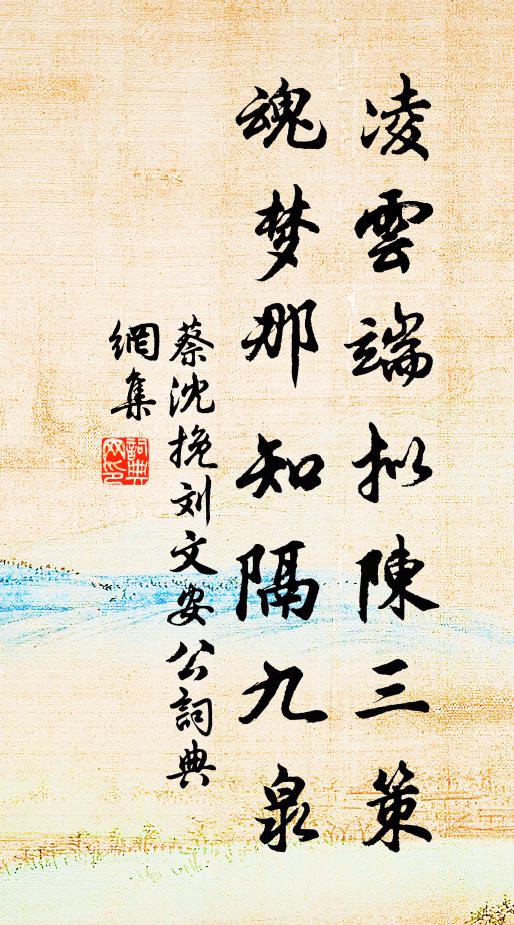 凌雲端拟陳三策
魂梦那知隔九泉
蔡沈挽刘文安公詞典
網集
詞典
网印